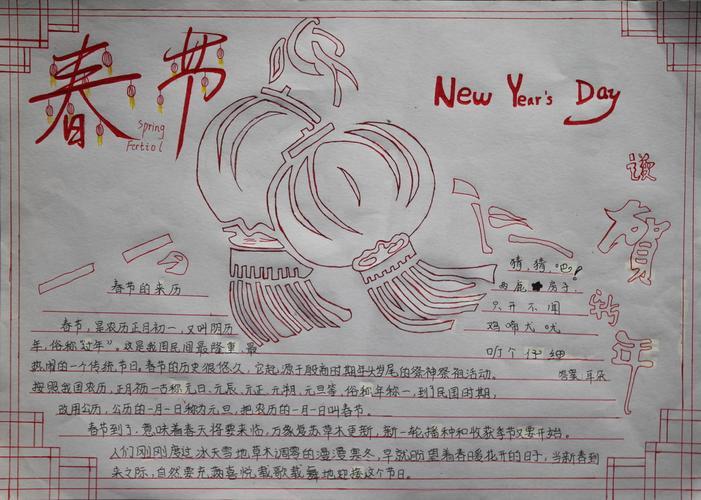 春节
Spring
Fertiol
New Year's Day
谨
贺
新
年
春节的来历
春节,是农历正月初一,又叫阴历
年,俗称“过年”。这是我国民间最隆重、最
热闹的一个传统节日。春节的历史很悠久,它起源于殷商时期年头岁尾的祭神祭祖活动。
按照我国农历,正月初一古称元日、元辰、元正、元朔、元旦等,俗称年初一,到了民国时期,
改用公历,公历的一月一日称为元旦,把农历的一月一日叫春节。
春节到了,意味着春天将要来临,万象复苏草木更新,新一轮播种和收获季节又要开始。
人们刚刚度过冰天雪地草木凋零的漫漫寒冬,早就盼望着春暖花开的日子,当新春到
来之际,自然要充满喜悦载歌载舞地迎接这个节日。
猜,猜吧!
两座房子
只开不闻
鸡啼犬吠
听个仔细
答案:耳朵